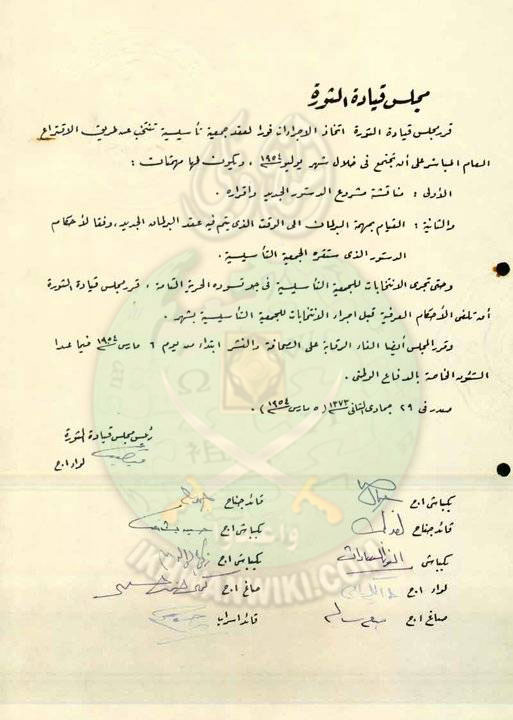 مجلس قيادة الثورة
قرر مجلس قيادة الثورة اتخاذ الاجراءات فورا لعقد جمعية تأسيسية تنتخب عن طريق الاقتراع
العام المباشر على أن تجتمع فى خلال شهر يوليو ١٩٥٤ ، ويكون لها مهمتان :
الأولى : مناقشة مشروع الدستور الجديد واقراره .
والثانية : القيام بمهمة البرلمان الى الوقت الذى يتم فيه عقد البرلمان الجديد ، وفقا لأحكام
الدستور الذى ستقره الجمعية التأسيسية .
وحتى تجرى الانتخابات للجمعية التأسيسية فى جو تسوده الحرية التامة ، قرر مجلس قيادة الثورة
أن تلغى الأحكام العرفية قبل اجراء الانتخابات للجمعية التأسيسية بشهر .
وقرر المجلس أيضا الغاء الرقابة على الصحافة والنشر ابتداء من يوم ٦ مارس ١٩٥٤ فيما عدا
الشئون الخاصة بالدفاع الوطنى .
صدر فى ٢٩ جمادى الثانى ١٣٧٣ ( ٥ مارس ١٩٥٤ ) .
رئيس مجلس قيادة الثورة
لواء ا٠ح
بكباشى ا٠ح
قائد جناح
قائد جناح
بكباشى ا٠ح
بكباشى أنور السادات
بكباشى ا٠ح
لواء ا٠ح
صاغ ا٠ح
صاغ ا٠ح
قائد اسراب
واعدوا
IKHWANWIKI.COM